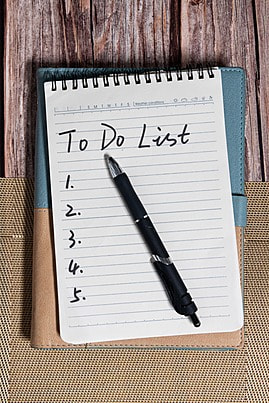 To Do List
1.
2.
3.
4.
5.